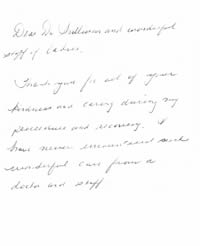 Dear Dr. Sullivan and wonderful
staff of ladies.
Thank you for all of your
kindness and caring during my
procedure and recovery. I
have never encountered such
wonderful care from a
doctor and staff